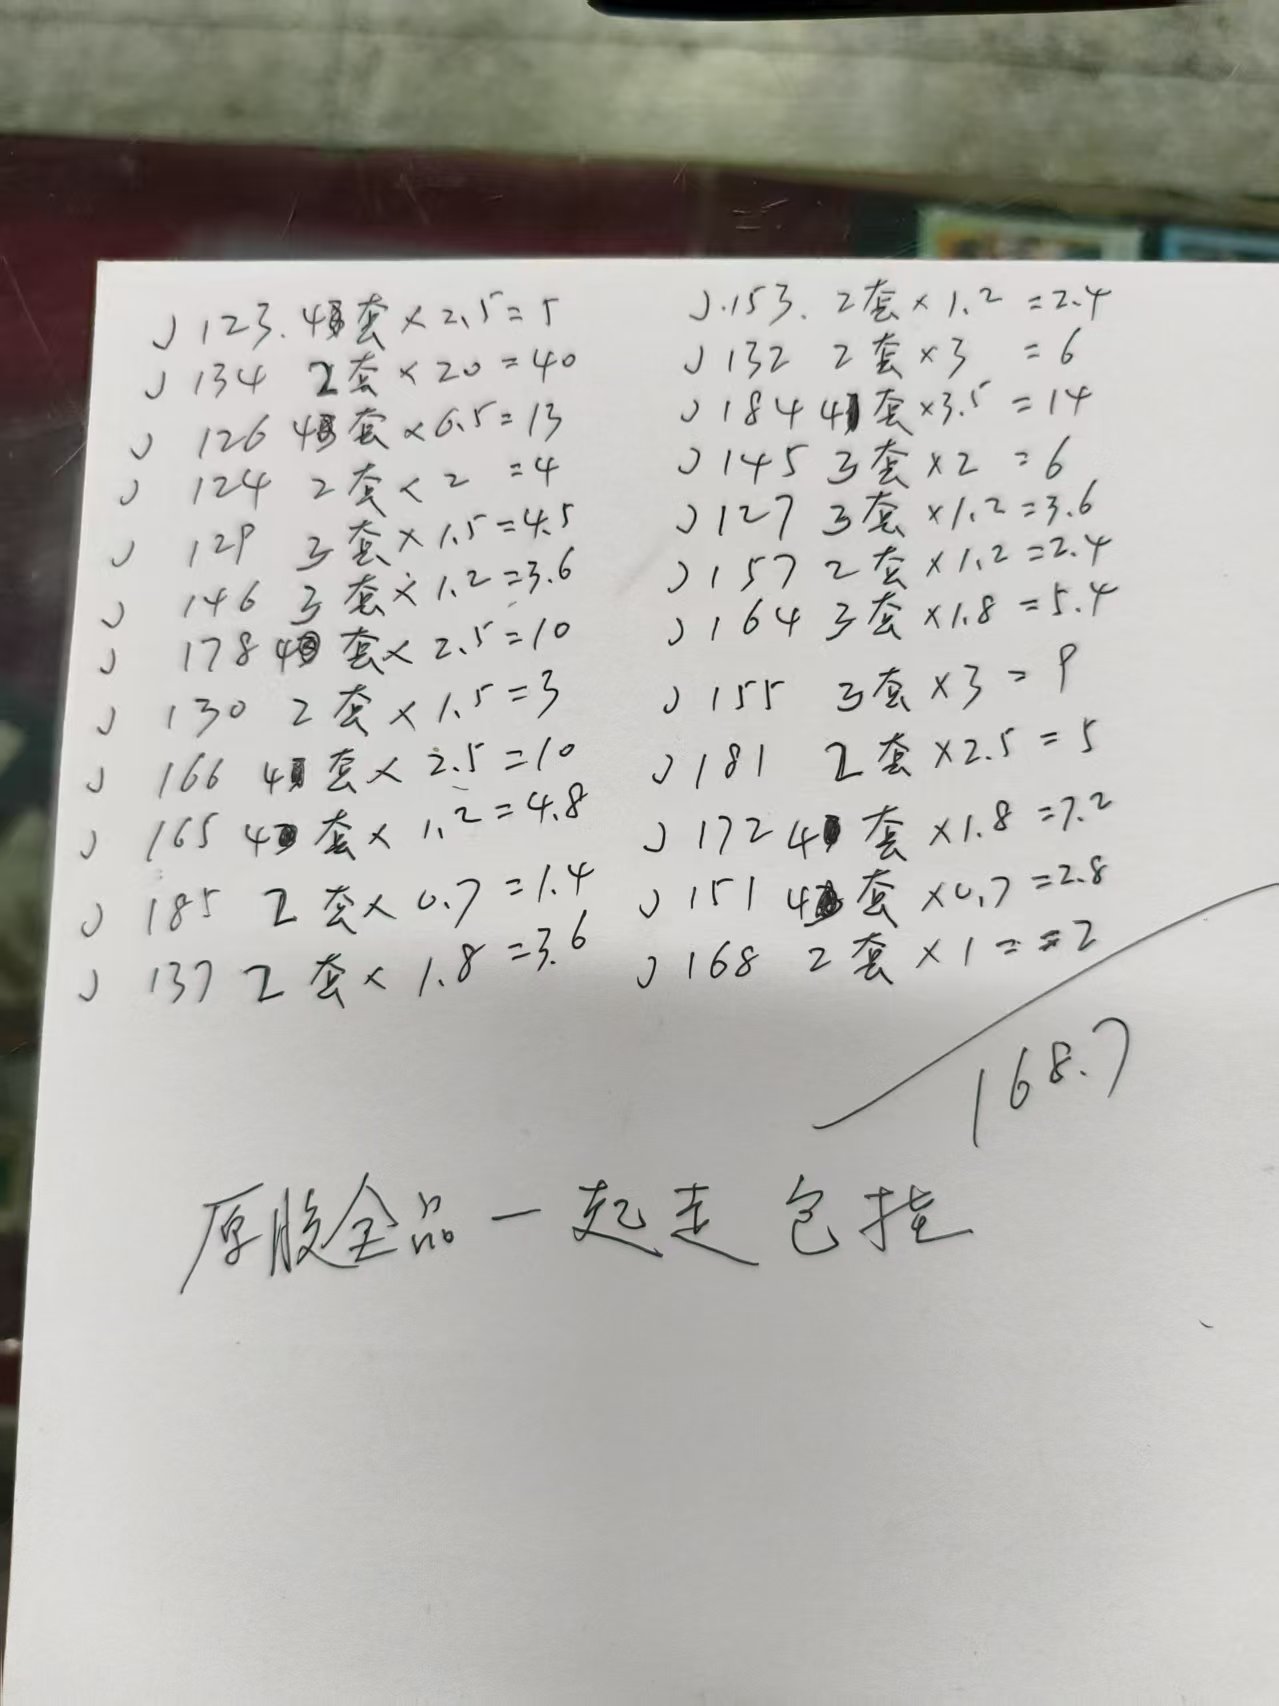 J 123. 4套×2.5=5
J 134 2套×20=40
J 126 4套×6.5=13
J 124 2套×2=4
J 129 3套×1.5=4.5
J 146 3套×1.2=3.6
J 178 4套×2.5=10
J 130 2套×1.5=3
J 166 4套×2.5=10
J 165 4套×1.2=4.8
J 185 2套×0.7=1.4
J 137 2套×1.8=3.6
J.153. 2套×1.2=2.4
J 132 2套×3=6
J 184 4套×3.5=14
J 145 3套×2=6
J 127 3套×1.2=3.6
J 157 2套×1.2=2.4
J 164 3套×1.8=5.4
J 155 3套×3=9
J 181 2套×2.5=5
J 172 4套×1.8=7.2
J 151 4套×0.7=2.8
J 168 2套×1==2
168.7
原胶全品一起走 包挂